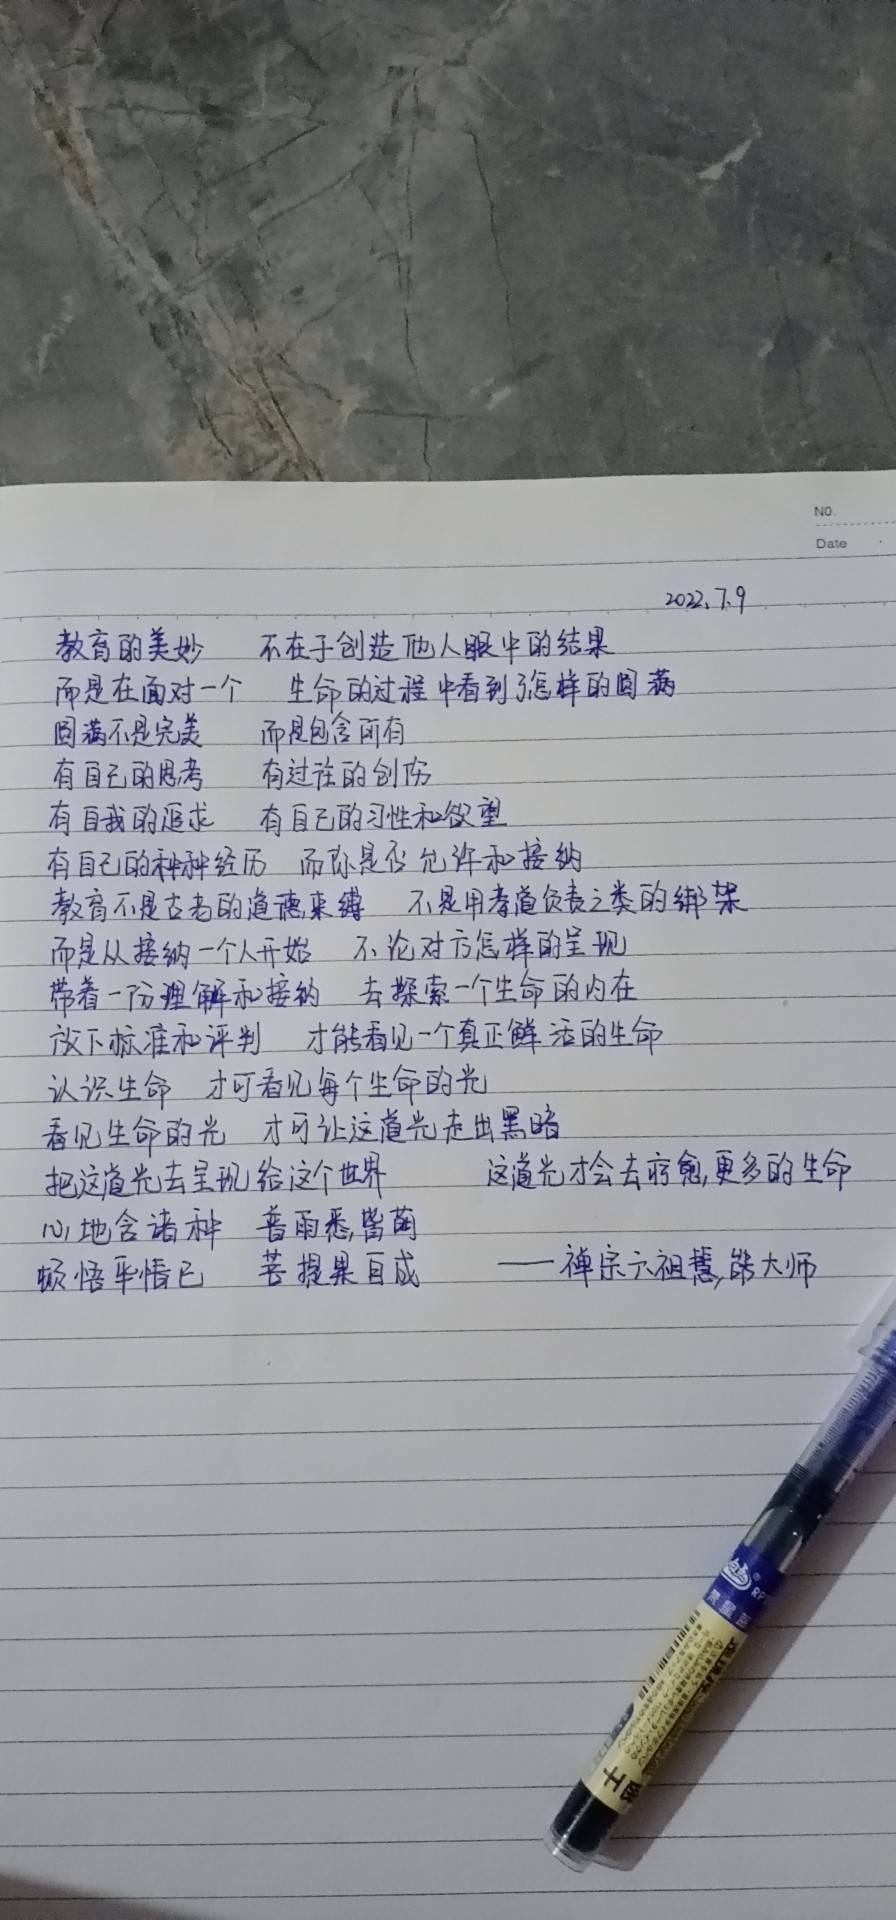 NO.
Date
2022.7.9
教育的美妙 不在于创造他人眼中的结果
而是在面对一个 生命的过程中看到了怎样的圆满
圆满不是完美 而是包含所有
有自己的思考 有过往的创伤
有自我的追求 有自己的习性和欲望
有自己的种种经历 而你是否允许和接纳
教育不是古老的道德束缚 不是用孝道负责之类的绑架
而是从接纳一个人开始 不论对方怎样的呈现
带着一份理解和接纳 去探索一个生命的内在
放下标准和评判 才能看见一个真正鲜活的生命
认识生命 才可看见每个生命的光
看见生命的光 才可让这道光走出黑暗
把这道光去呈现给这个世界 这道光才会去疗愈更多的生命
心地含诸种 普雨悉皆萌
顿悟华情已 菩提果自成 ——禅宗六祖慧能大师